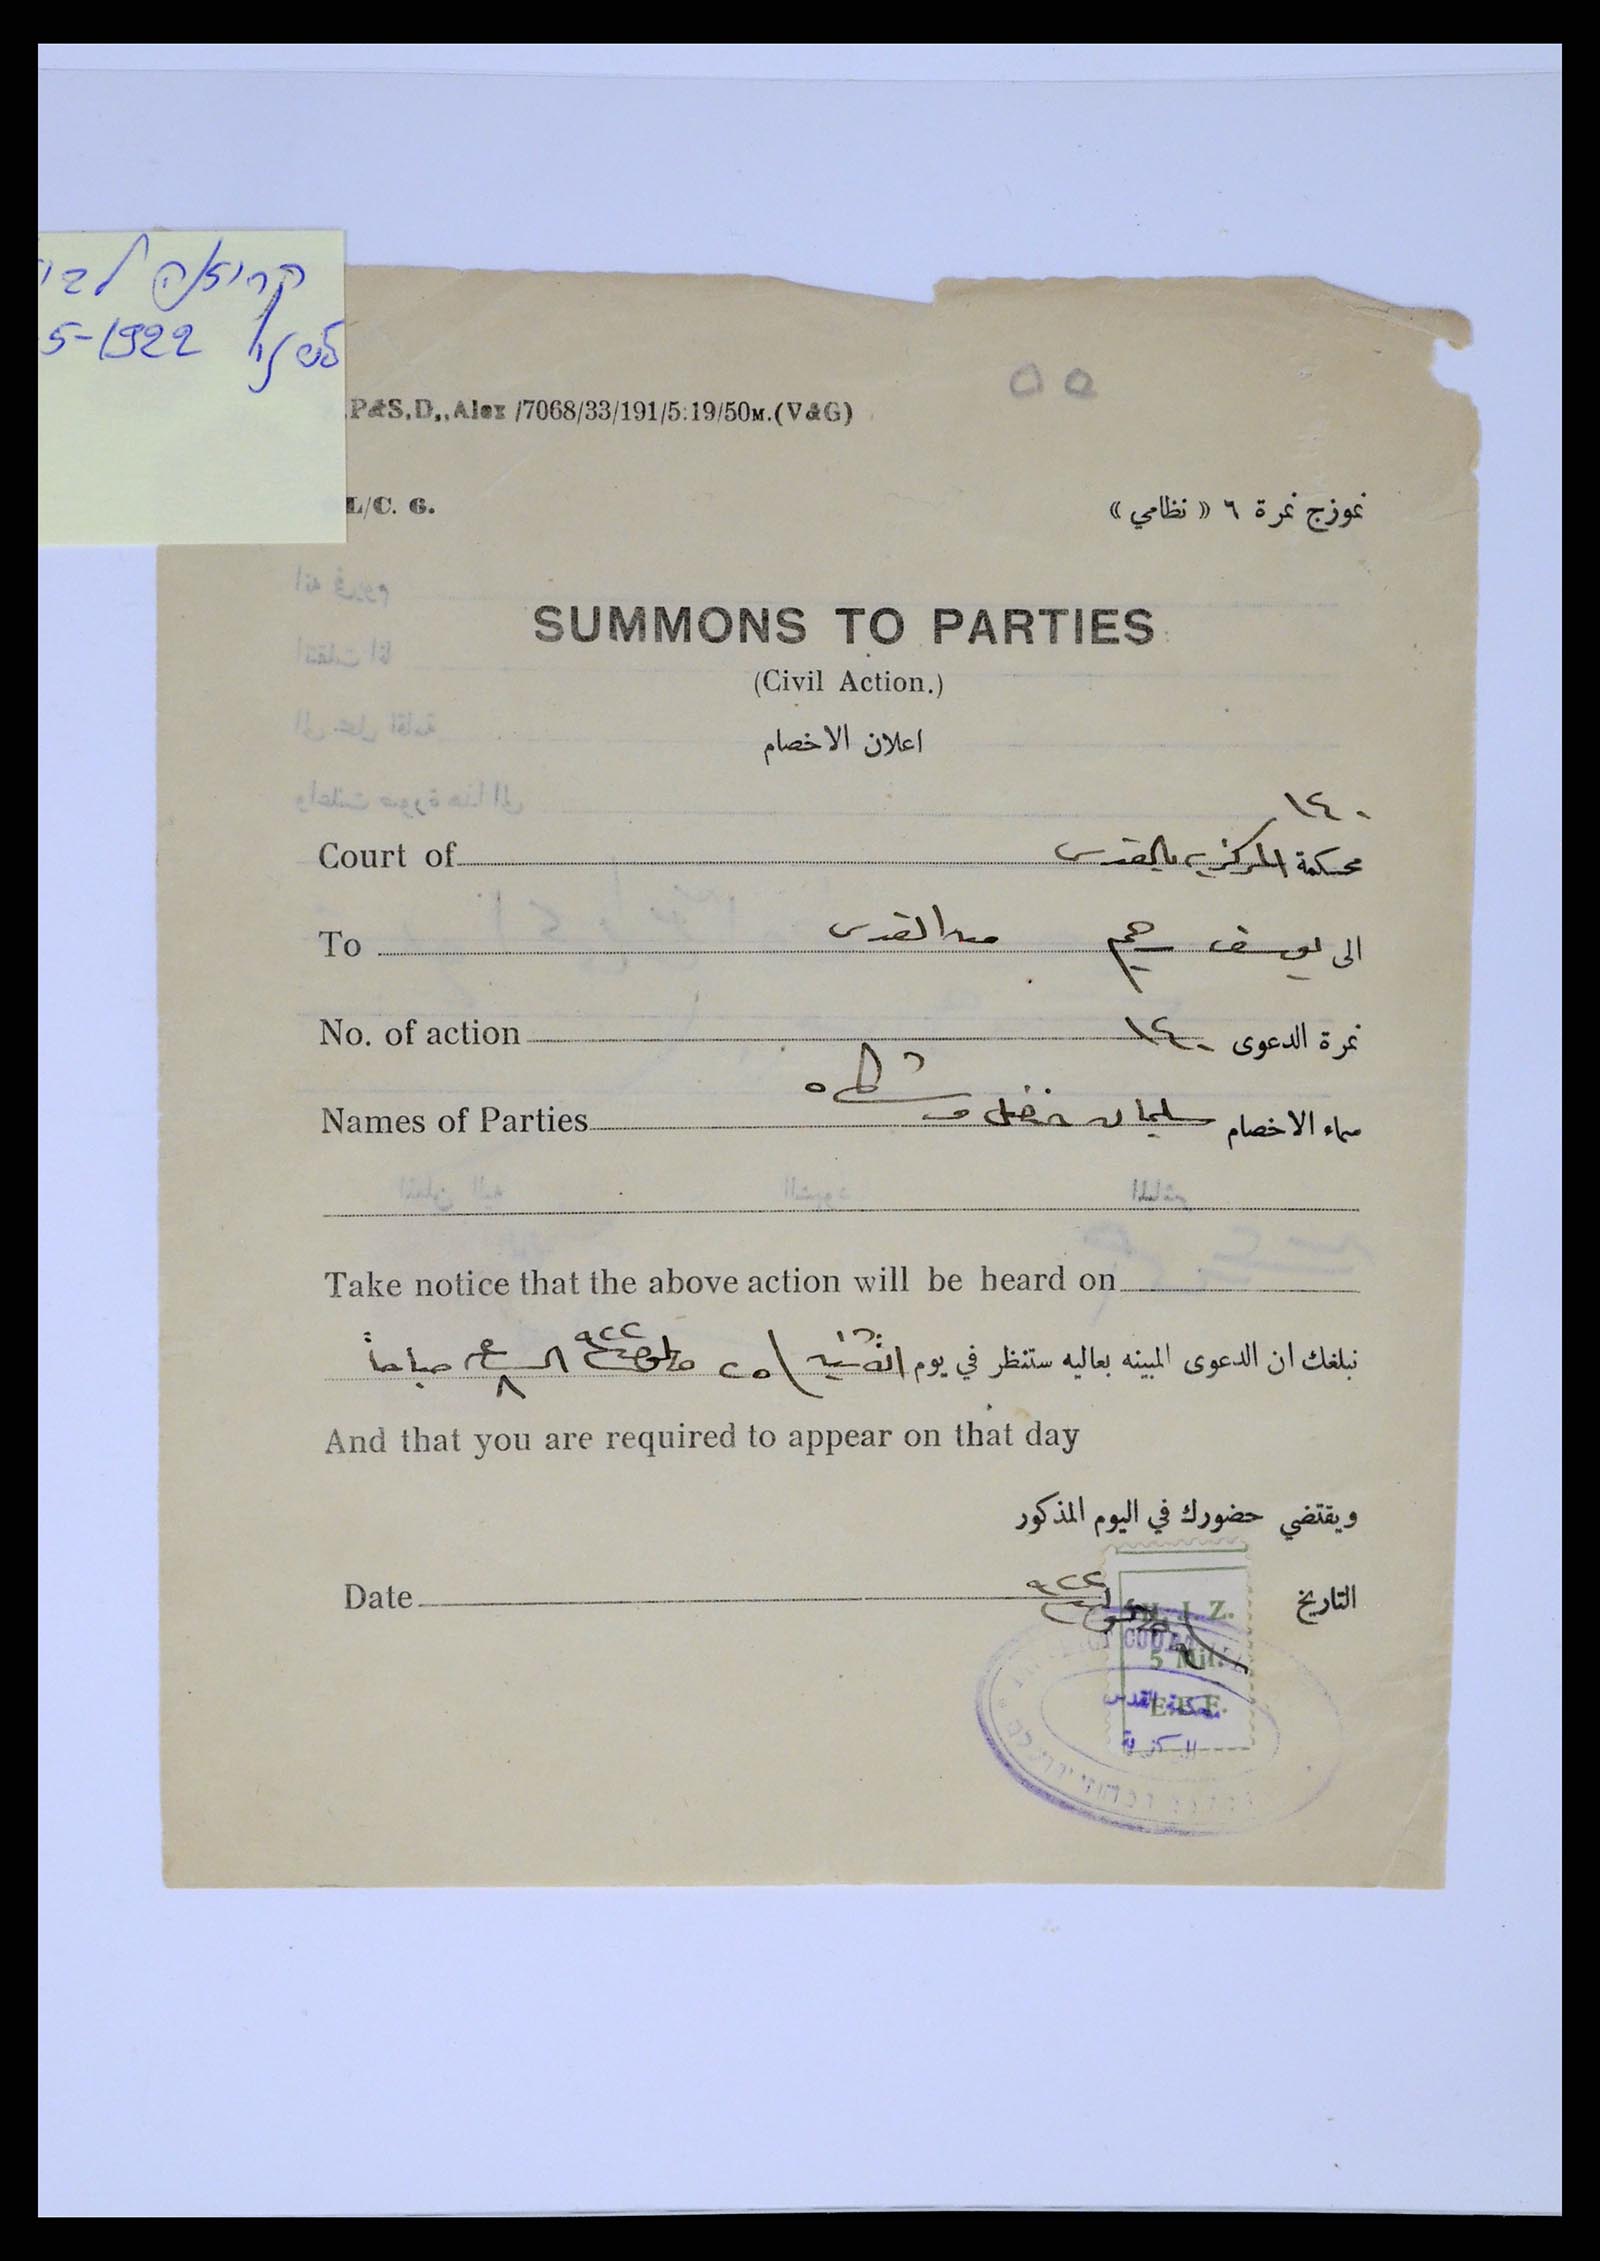 קריאה לבי
5-1922
P&S.D,,Alex /7068/33/191/5:19/50M.(V&G)
L/C. 6.
نموزج نمرة ٦ « نظامي »
SUMMONS TO PARTIES
(Civil Action.)
اعلان الاخصام
١٤٠
Court of محكمة المركزية بالقدس
To الى يوسف من القدس
No. of action نمرة الدعوى ١٤٠
Names of Parties سماء الاخصام سليمان
Take notice that the above action will be heard on
نبلغك ان الدعوى المبينه بعاليه ستنظر في يوم ٩٢٢ ٨ صباحاً
And that you are required to appear on that day
ويقتضي حضورك في اليوم المذكور
Date التاريخ ٩٢٢
H. J. Z.
5 Mil.
E.E.F.
محكمة القدس
المركزية